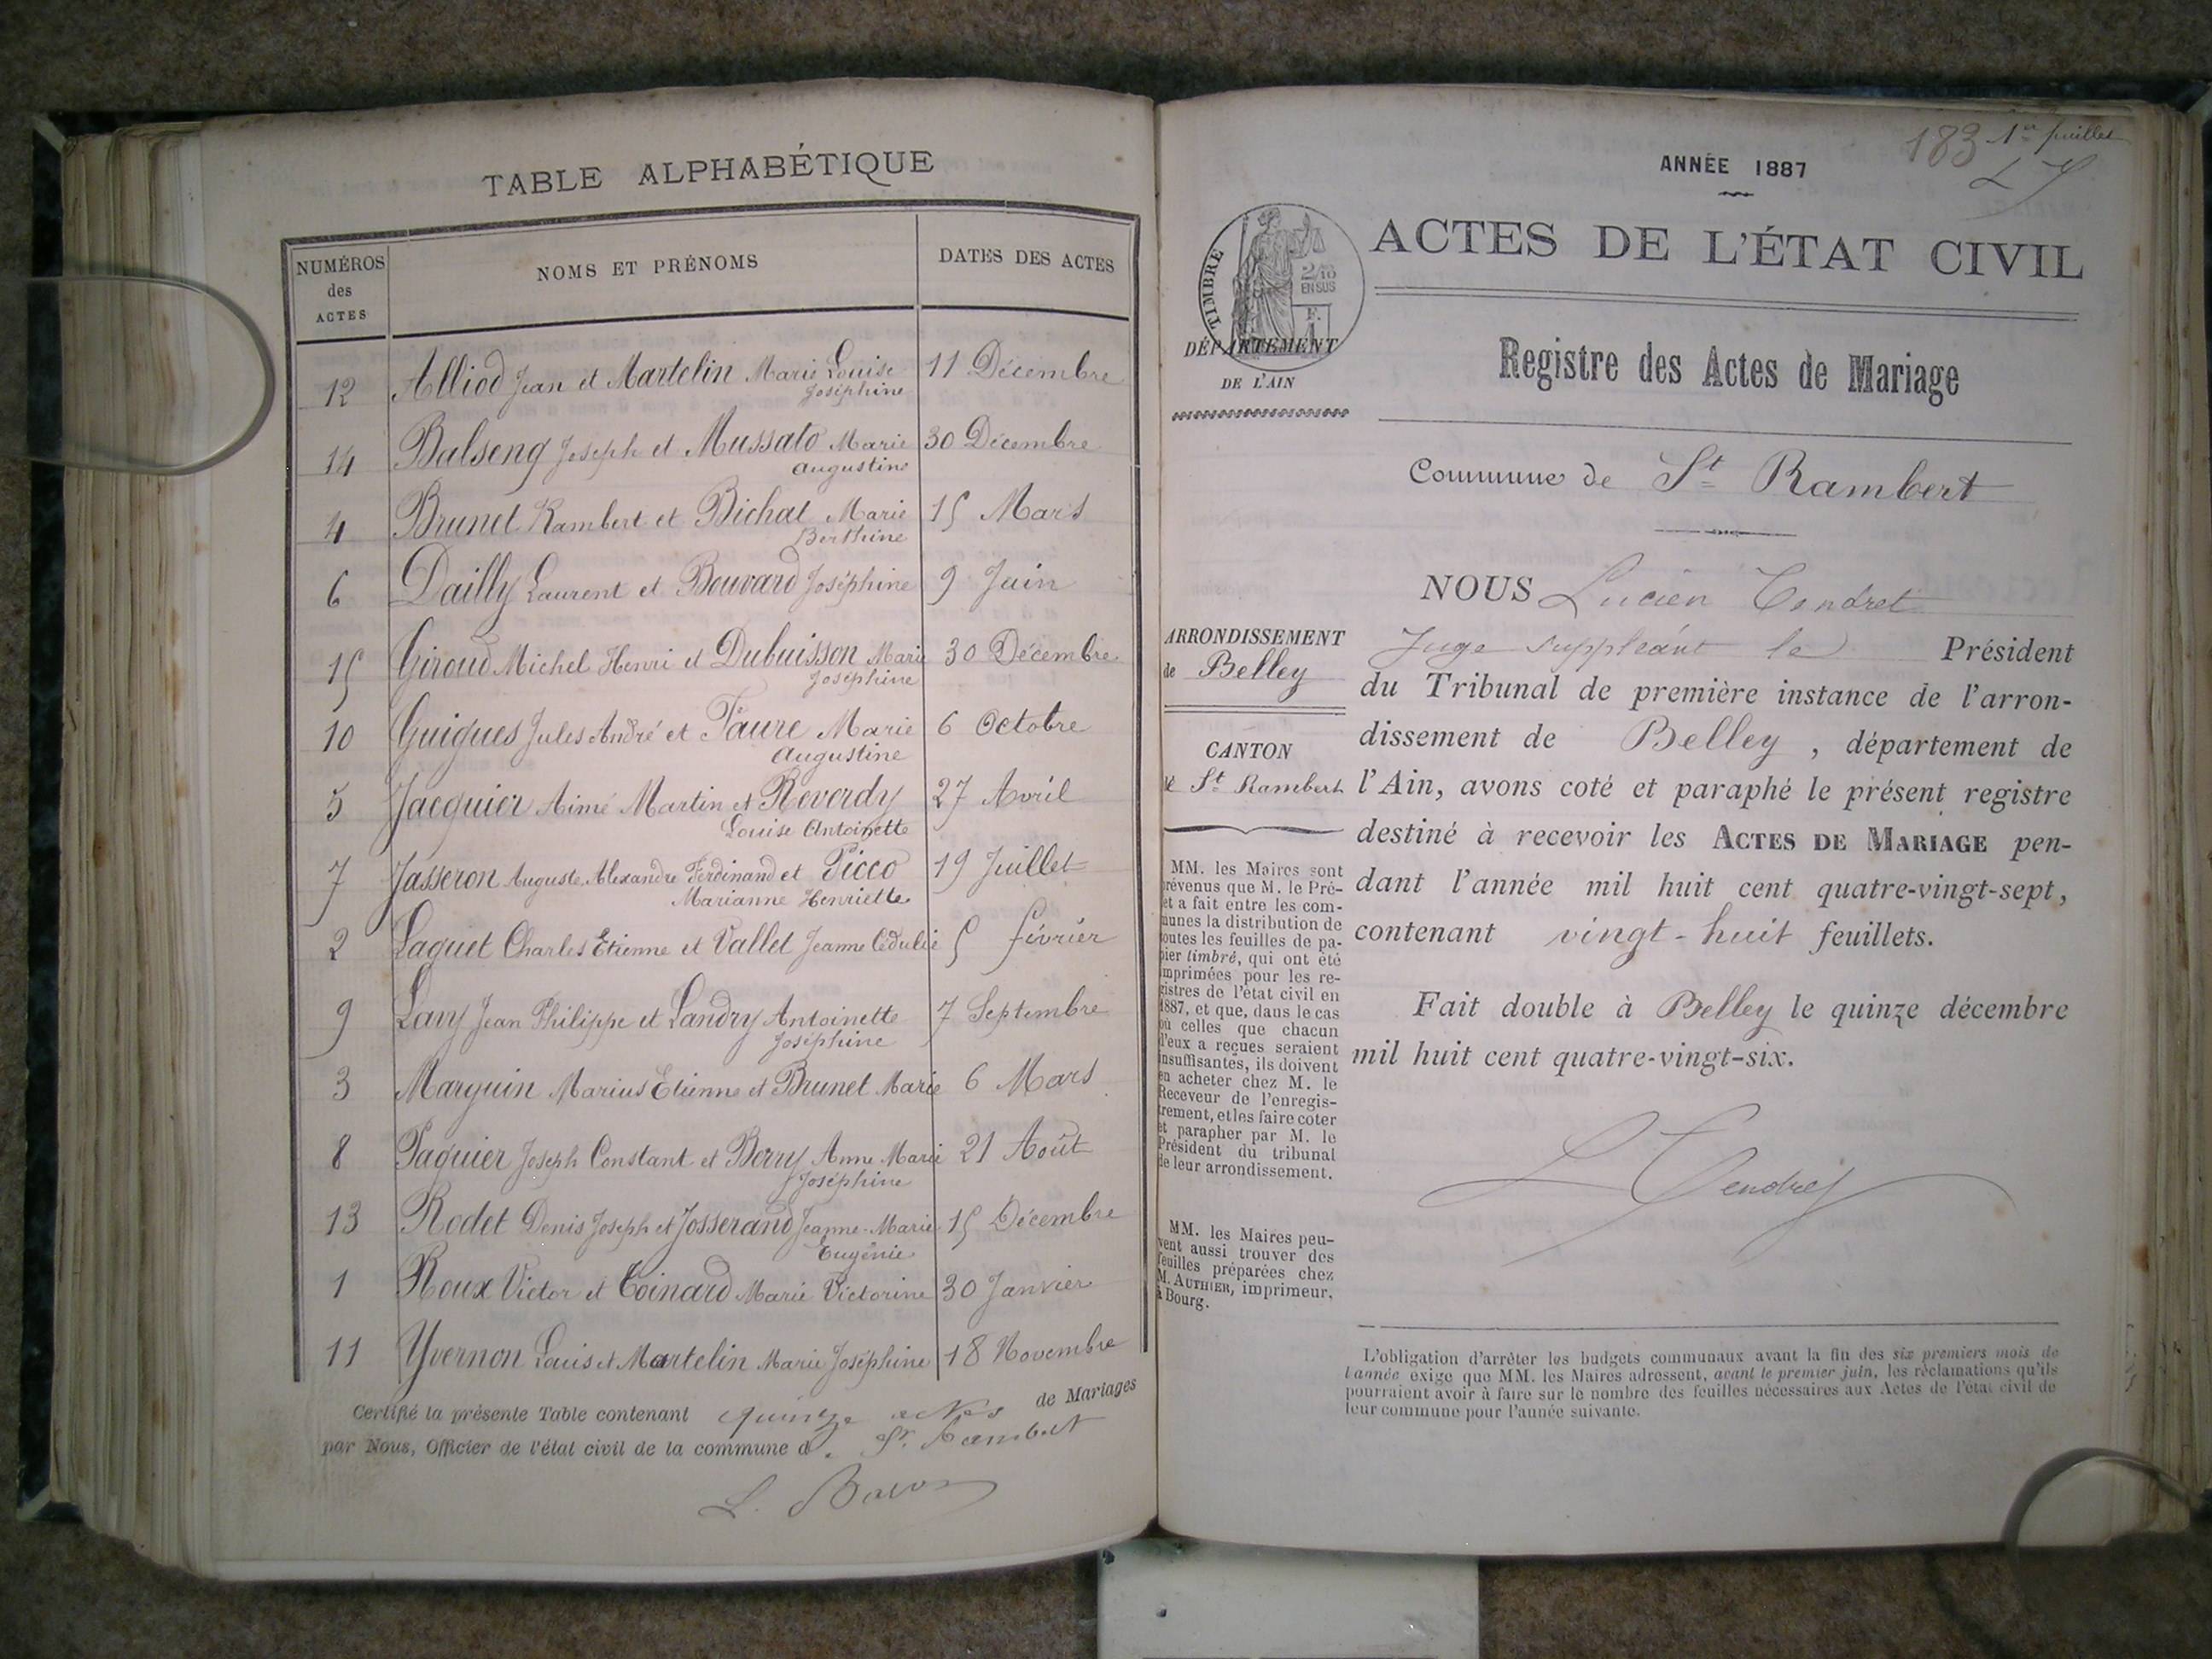 TABLE ALPHABÉTIQUE
NUMÉROS des ACTES
NOMS ET PRÉNOMS
DATES DES ACTES
12 Alliod Jean et Martelin Marie Louise 11 Décembre
Joséphine
14 Balseng Joseph et Mussato Marie 30 Décembre
Augustine
4 Brunet Rambert et Bichat Marie 15 Mars
Berthine
6 Dailly Laurent et Bouvard Joséphine 9 Juin
15 Giroud Michel Henri et Dubuisson Marie 30 Décembre
Joséphine
10 Guigues Jules André et Faure Marie 6 Octobre
Augustine
5 Jacquier Aimé Martin et Reverdy 27 Avril
Louise Antoinette
7 Jasseron Auguste Alexandre Ferdinand et Picco 19 Juillet
Marianne Henriette
2 Laguet Charles Etienne et Vallet Jeanne Cédulie 5 février
9 Lavy Jean Philippe et Landry Antoinette 7 Septembre
Joséphine
3 Marguin Marius Etienne et Brunet Marie 6 Mars
8 Paquier Joseph Constant et Berry Anne Marie 21 Août
Joséphine
13 Rodet Denis Joseph et Josserand Jeanne-Marie 15 Décembre
Eugénie
1 Roux Victor et Coinard Marie Victorine 30 Janvier
11 Yvernon Louis et Martelin Marie Joséphine 18 Novembre
Certifié la présente Table contenant quinze actes de Mariages
par Nous, Officier de l'état civil de la commune d St. Rambert
183 1er feuillet
LT
ANNÉE 1887
TIMBRE
2/10
EN SUS
F.
1
ACTES DE L'ÉTAT CIVIL
DÉPARTEMENT
DE L'AIN
Registre des Actes de Mariage
Commune de St Rambert
NOUS Lucien Tendret
Juge suppléant le Président
du Tribunal de première instance de l'arron-
dissement de Belley, département de
l'Ain, avons coté et paraphé le présent registre
destiné à recevoir les ACTES DE MARIAGE pen-
dant l'année mil huit cent quatre-vingt-sept,
contenant vingt-huit feuillets.
Fait double à Belley le quinze décembre
mil huit cent quatre-vingt-six.
L Tendret
ARRONDISSEMENT
de Belley
CANTON
de St Rambert
MM. les Maires sont
prévenus que M. le Pré-
fet a fait entre les com-
munes la distribution de
toutes les feuilles de pa-
pier timbré, qui ont été
imprimées pour les re-
gistres de l'état civil en
1887, et que, dans le cas
où celles que chacun
d'eux a reçues seraient
insuffisantes, ils doivent
en acheter chez M. le
Receveur de l'enregis-
trement, et les faire coter
et parapher par M. le
Président du tribunal
de leur arrondissement.
MM. les Maires peu-
vent aussi trouver des
feuilles préparées chez
M. AUTHIER, imprimeur,
à Bourg.
L'obligation d'arrêter les budgets communaux avant la fin des six premiers mois de
l'année exige que MM. les Maires adressent, avant le premier juin, les réclamations qu'ils
pourraient avoir à faire sur le nombre des feuilles nécessaires aux Actes de l'état civil de
leur commune pour l'année suivante.